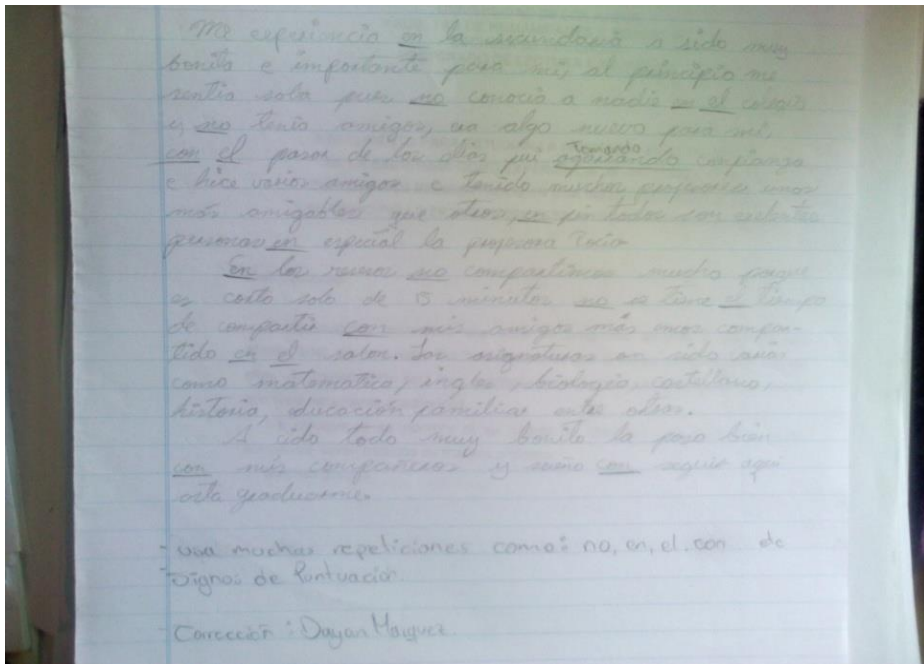 Mi experiencia en la secundaria a sido muy
bonita e importante para mi, al principio me
sentia sola pues no conocia a nadie en el colegio
y no tenia amigos, era algo nuevo para mi,
con el pasar de los dias fui agarrando confianza
Tomando
e hice varios amigos e tenido muchos profesores unos
más amigables que otros, en fin todos son exelentes
personas en especial la profesora Rocio
En los recesos no compartimos mucho porque
es corto solo de 15 minutos no se tiene el tiempo
de compartir con mis amigos más emos compar-
tido en el salon. Las asignaturas an sido varias
como matematica, ingles, biologia, castellano,
historia, educación familiar entre otras.
A cido todo muy bonito la paso bien
con mis compañeros y sueño con seguir aqui
asta graduarme.
- usa muchas repeticiones como: no, en, el, con de
signos de Puntuación
- Corección: Dayan Marquez